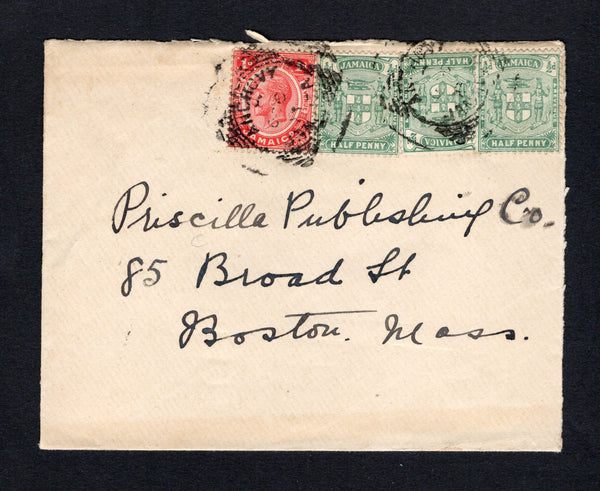 1d
JAMAICA
JAMAICA
HALF PENNY
HALF PENNY
JAMAICA
JAMAICA
HALF PENNY
ANCHOVY
Priscilla Publishing Co.
85 Broad St
Boston. Mass.